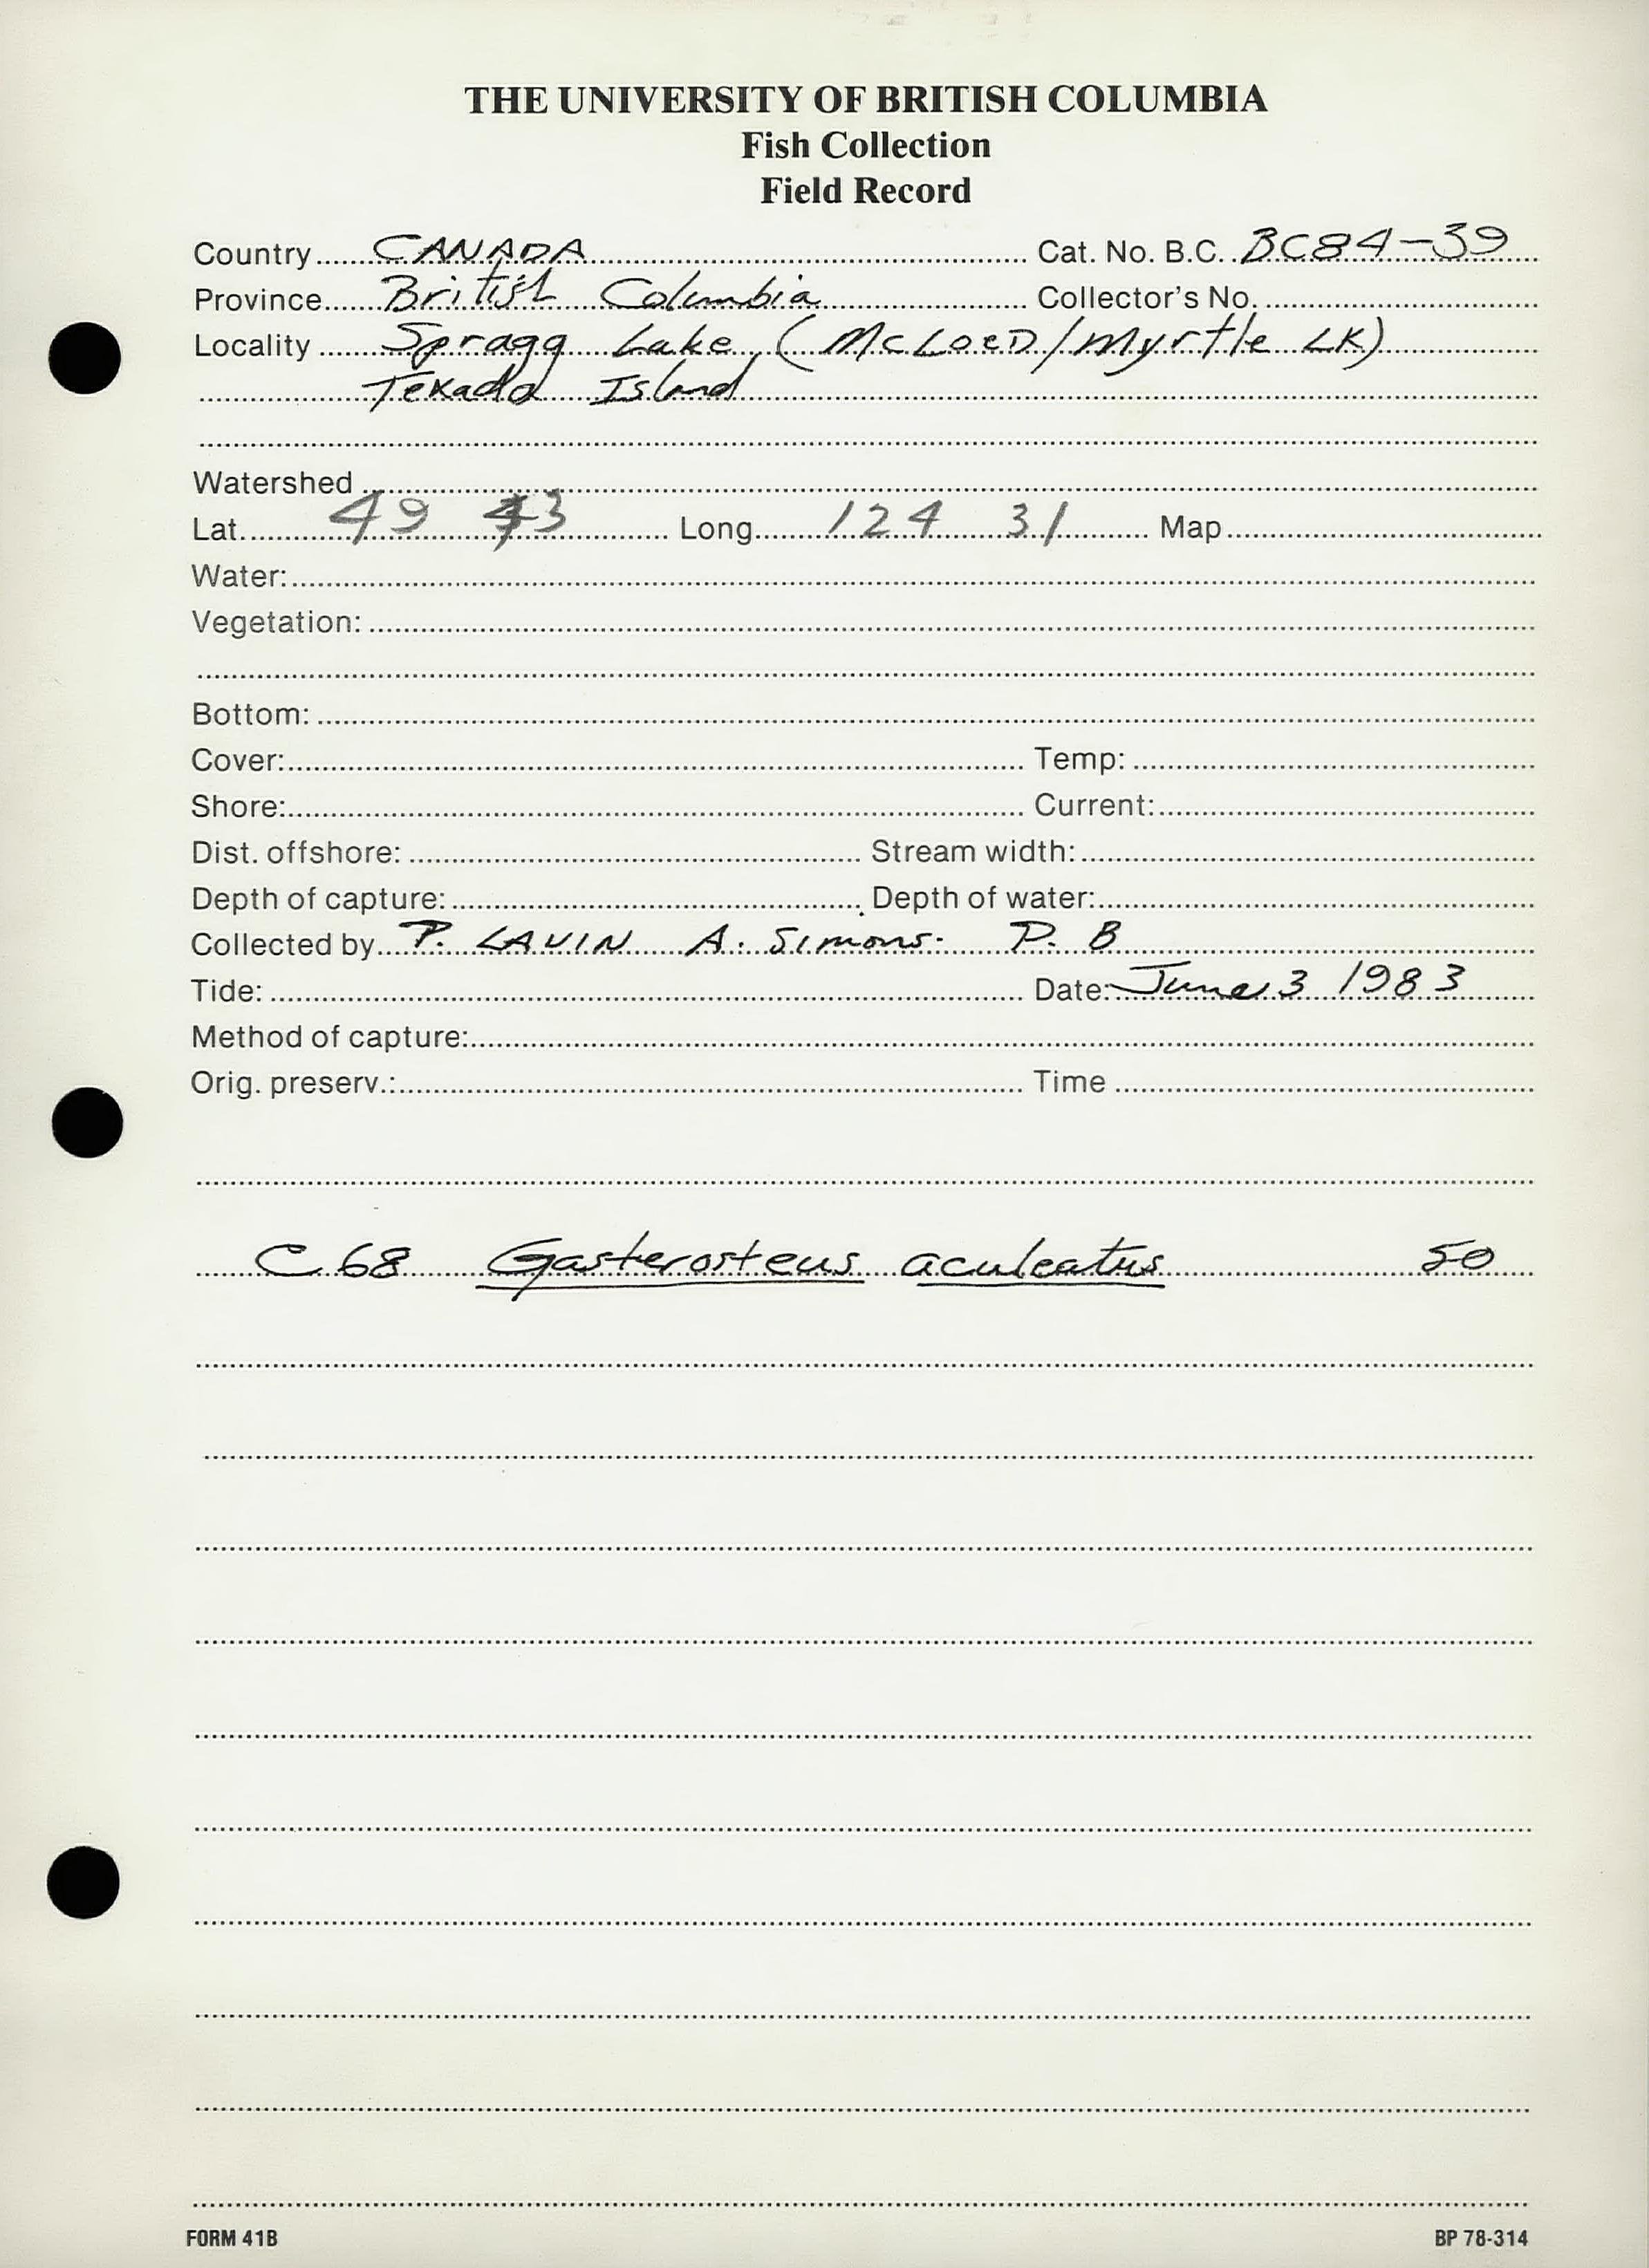 THE UNIVERSITY OF BRITISH COLUMBIA
Fish Collection
Field Record
Country CANADA Cat. No. B.C. BC84-39
Province British Columbia Collector's No.
Locality Spragg Lake, (McLoeD/Myrtle LK)
Texada Island
Watershed
Lat. 49 43 Long. 124 31 Map
Water:
Vegetation:
Bottom:
Cover: Temp:
Shore: Current:
Dist. offshore: Stream width:
Depth of capture: Depth of water:
Collected by P. LAVIN A. Simons. P. B
Tide: Date: June 3 1983
Method of capture:
Orig. preserv.: Time
C 68 Gasterosteus aculeatus 50
FORM 41B BP 78-314